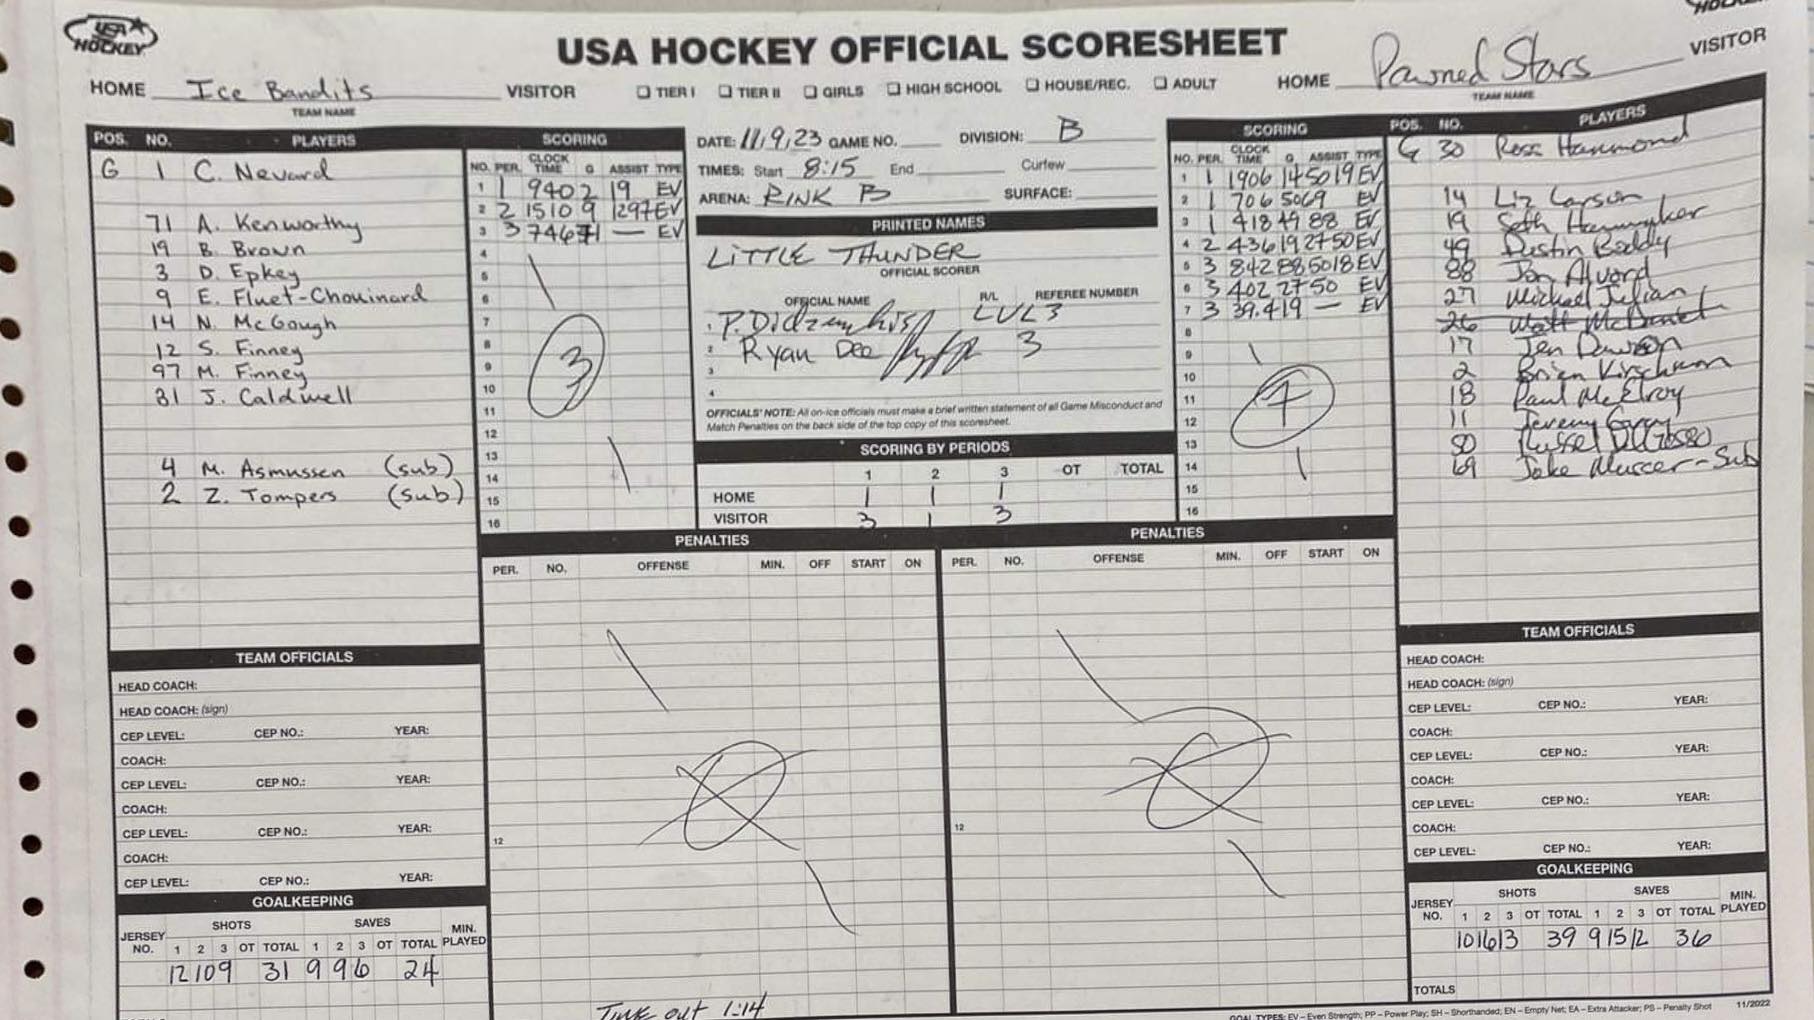 USA HOCKEY
USA HOCKEY OFFICIAL SCORESHEET
HOCKEY
HOME Ice Bandits VISITOR
TEAM NAME
☐ TIER I ☐ TIER II ☐ GIRLS ☐ HIGH SCHOOL ☐ HOUSE/REC. ☐ ADULT
HOME Pawned Stars VISITOR
TEAM NAME
POS. NO. PLAYERS
G 1 C. Nevard
71 A. Kenworthy
19 B. Brown
3 D. Epkey
9 E. Fluet-Chouinard
14 N. McGough
12 S. Finney
97 M. Finney
31 J. Caldwell
4 M. Asmussen (sub)
2 Z. Tompers (sub)
SCORING
NO. PER. CLOCK TIME G ASSIST TYPE
1 1 940 2 19 EV
2 2 1510 9 1297 EV
3 3 746 71 — EV
4
5
6
7
8
9
10
11
12
13
14
15
16
3
DATE: 11/9/23 GAME NO. DIVISION: B
TIMES: Start 8:15 End Curfew
ARENA: RINK B SURFACE:
PRINTED NAMES
LITTLE THUNDER
OFFICIAL SCORER
OFFICIAL NAME R/L REFEREE NUMBER
1 LVL3
2 Ryan Dee 3
3
4
OFFICIALS' NOTE: All on-ice officials must make a brief written statement of all Game Misconduct and
Match Penalties on the back side of the top copy of this scoresheet.
SCORING BY PERIODS
1 2 3 OT TOTAL
HOME 1 1 1
VISITOR 3 1 3
SCORING
NO. PER. CLOCK TIME G ASSIST TYPE
1 1 1906 14 5019 EV
2 1 706 50 69 EV
3 1 418 49 88 EV
4 2 436 19 2750 EV
5 3 842 88 5018 EV
6 3 402 27 50 EV
7 3 39.4 19 — EV
8
9
10
11
12
13
14
15
16
7
POS. NO. PLAYERS
G 30 Ross Hammond
14 Liz Carson
19 Seth
49 Dustin Boddy
88 Jon Alvord
27 Michael Julian
26 Matt McDaniel
17 Jen Dawson
2 Brian Kirschman
18 Paul McElroy
11 Jeremy Gray
50 Russel
69 Jake Mercer-Sub
PENALTIES
PER. NO. OFFENSE MIN. OFF START ON
12
Time out 1:14
PENALTIES
PER. NO. OFFENSE MIN. OFF START ON
12
TEAM OFFICIALS
HEAD COACH:
HEAD COACH: (sign)
CEP LEVEL: CEP NO.: YEAR:
COACH:
CEP LEVEL: CEP NO.: YEAR:
COACH:
CEP LEVEL: CEP NO.: YEAR:
COACH:
CEP LEVEL: CEP NO.: YEAR:
GOALKEEPING
SHOTS SAVES
JERSEY NO. 1 2 3 OT TOTAL 1 2 3 OT TOTAL MIN. PLAYED
12 10 9 31 9 9 6 24
TEAM OFFICIALS
HEAD COACH:
HEAD COACH: (sign)
CEP LEVEL: CEP NO.: YEAR:
COACH:
CEP LEVEL: CEP NO.: YEAR:
COACH:
CEP LEVEL: CEP NO.: YEAR:
COACH:
CEP LEVEL: CEP NO.: YEAR:
GOALKEEPING
SHOTS SAVES
JERSEY NO. 1 2 3 OT TOTAL 1 2 3 OT TOTAL MIN. PLAYED
10 16 13 39 9 15 12 36
TOTALS
GOAL TYPES: EV – Even Strength; PP – Power Play; SH – Shorthanded; EN – Empty Net; EA – Extra Attacker; PS – Penalty Shot 11/2022